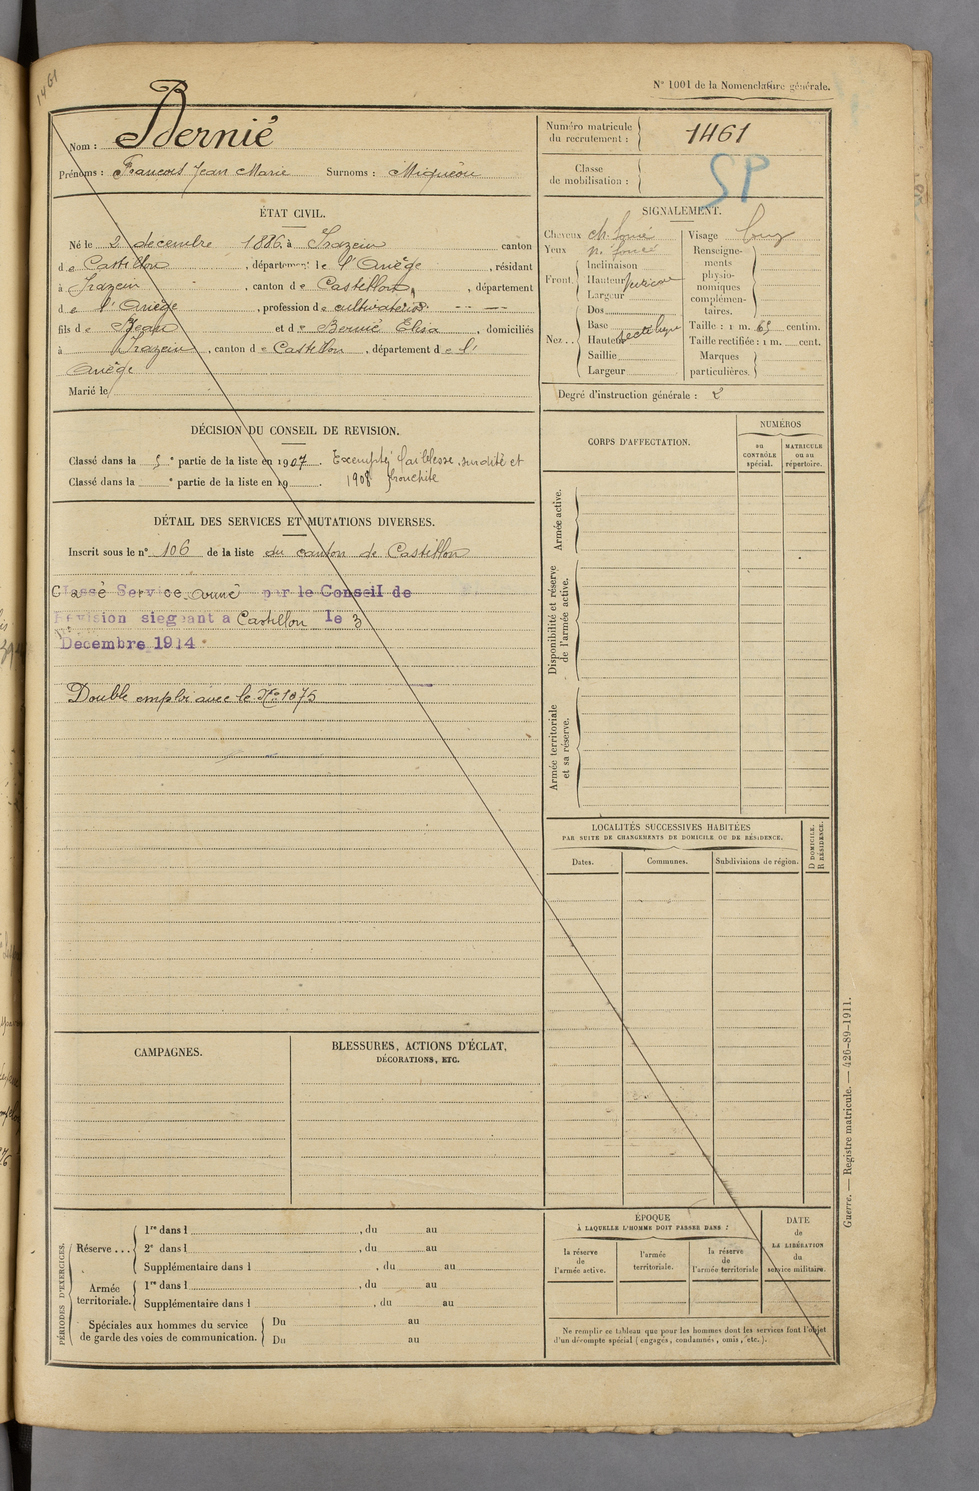 1461
N° 1001 de la Nomenclature générale.
Nom : Bernié
Prénoms : Francois Jean Marie Surnoms : Miquèou
Numéro matricule du recrutement : 1461
Classe de mobilisation :
SP
ÉTAT CIVIL.
Né le 2 decembre 1886, à Irazein canton
de Castillon, département de l'Ariège, résidant
à Irazein, canton de Castillon, département
de l'Ariège, profession de cultivateur
fils de Jean et de Bernié Elisa, domiciliés
à Irazein, canton de Castillon, département de l'
Ariège
Marié le
SIGNALEMENT.
Cheveux ch. foncé
Yeux
Front Inclinaison
Hauteur
Largeur
Nez .. Dos
Base
Hauteur
Saillie
Largeur
Visage long
Renseignements physionomiques complémentaires.
Taille : 1 m. 65 centim.
Taille rectifiée : 1 m. cent.
Marques particulières.
Degré d'instruction générale : 2
DÉCISION DU CONSEIL DE REVISION.
Classé dans la 5e partie de la liste en 1907. Exempté faiblesse, surdité et
Classé dans la e partie de la liste en 19 . 1908 bronchite
DÉTAIL DES SERVICES ET MUTATIONS DIVERSES.
Inscrit sous le n° 106 de la liste du canton de Castillon
Classé Service armé par le Conseil de
Révision siegeant a Castillon le 3
Décembre 1914
Double emploi avec le N° 1075
CORPS D'AFFECTATION.
NUMÉROS
au CONTRÔLE spécial.
MATRICULE ou au répertoire.
Armée active.
Disponibilité et réserve de l'armée active.
Armée territoriale et sa réserve.
LOCALITÉS SUCCESSIVES HABITÉES
PAR SUITE DE CHANGEMENTS DE DOMICILE OU DE RÉSIDENCE.
D DOMICILE.
R RÉSIDENCE.
Dates.
Communes.
Subdivisions de région.
CAMPAGNES.
BLESSURES, ACTIONS D'ÉCLAT,
DÉCORATIONS, ETC.
PÉRIODES D'EXERCICES.
Réserve ... 1re dans l , du au
2e dans l , du au
Supplémentaire dans l , du au
Armée territoriale. 1re dans l , du au
Supplémentaire dans l , du au
Spéciales aux hommes du service de garde des voies de communication. Du au
Du au
ÉPOQUE
À LAQUELLE L'HOMME DOIT PASSER DANS :
la réserve de l'armée active.
l'armée territoriale.
la réserve de l'armée territoriale
DATE de LA LIBÉRATION du service militaire.
Ne remplir ce tableau que pour les hommes dont les services font l'objet
d'un décompte spécial (engagés, condamnés, omis, etc.).
Guerre. — Registre matricule. — 426-89-1911.